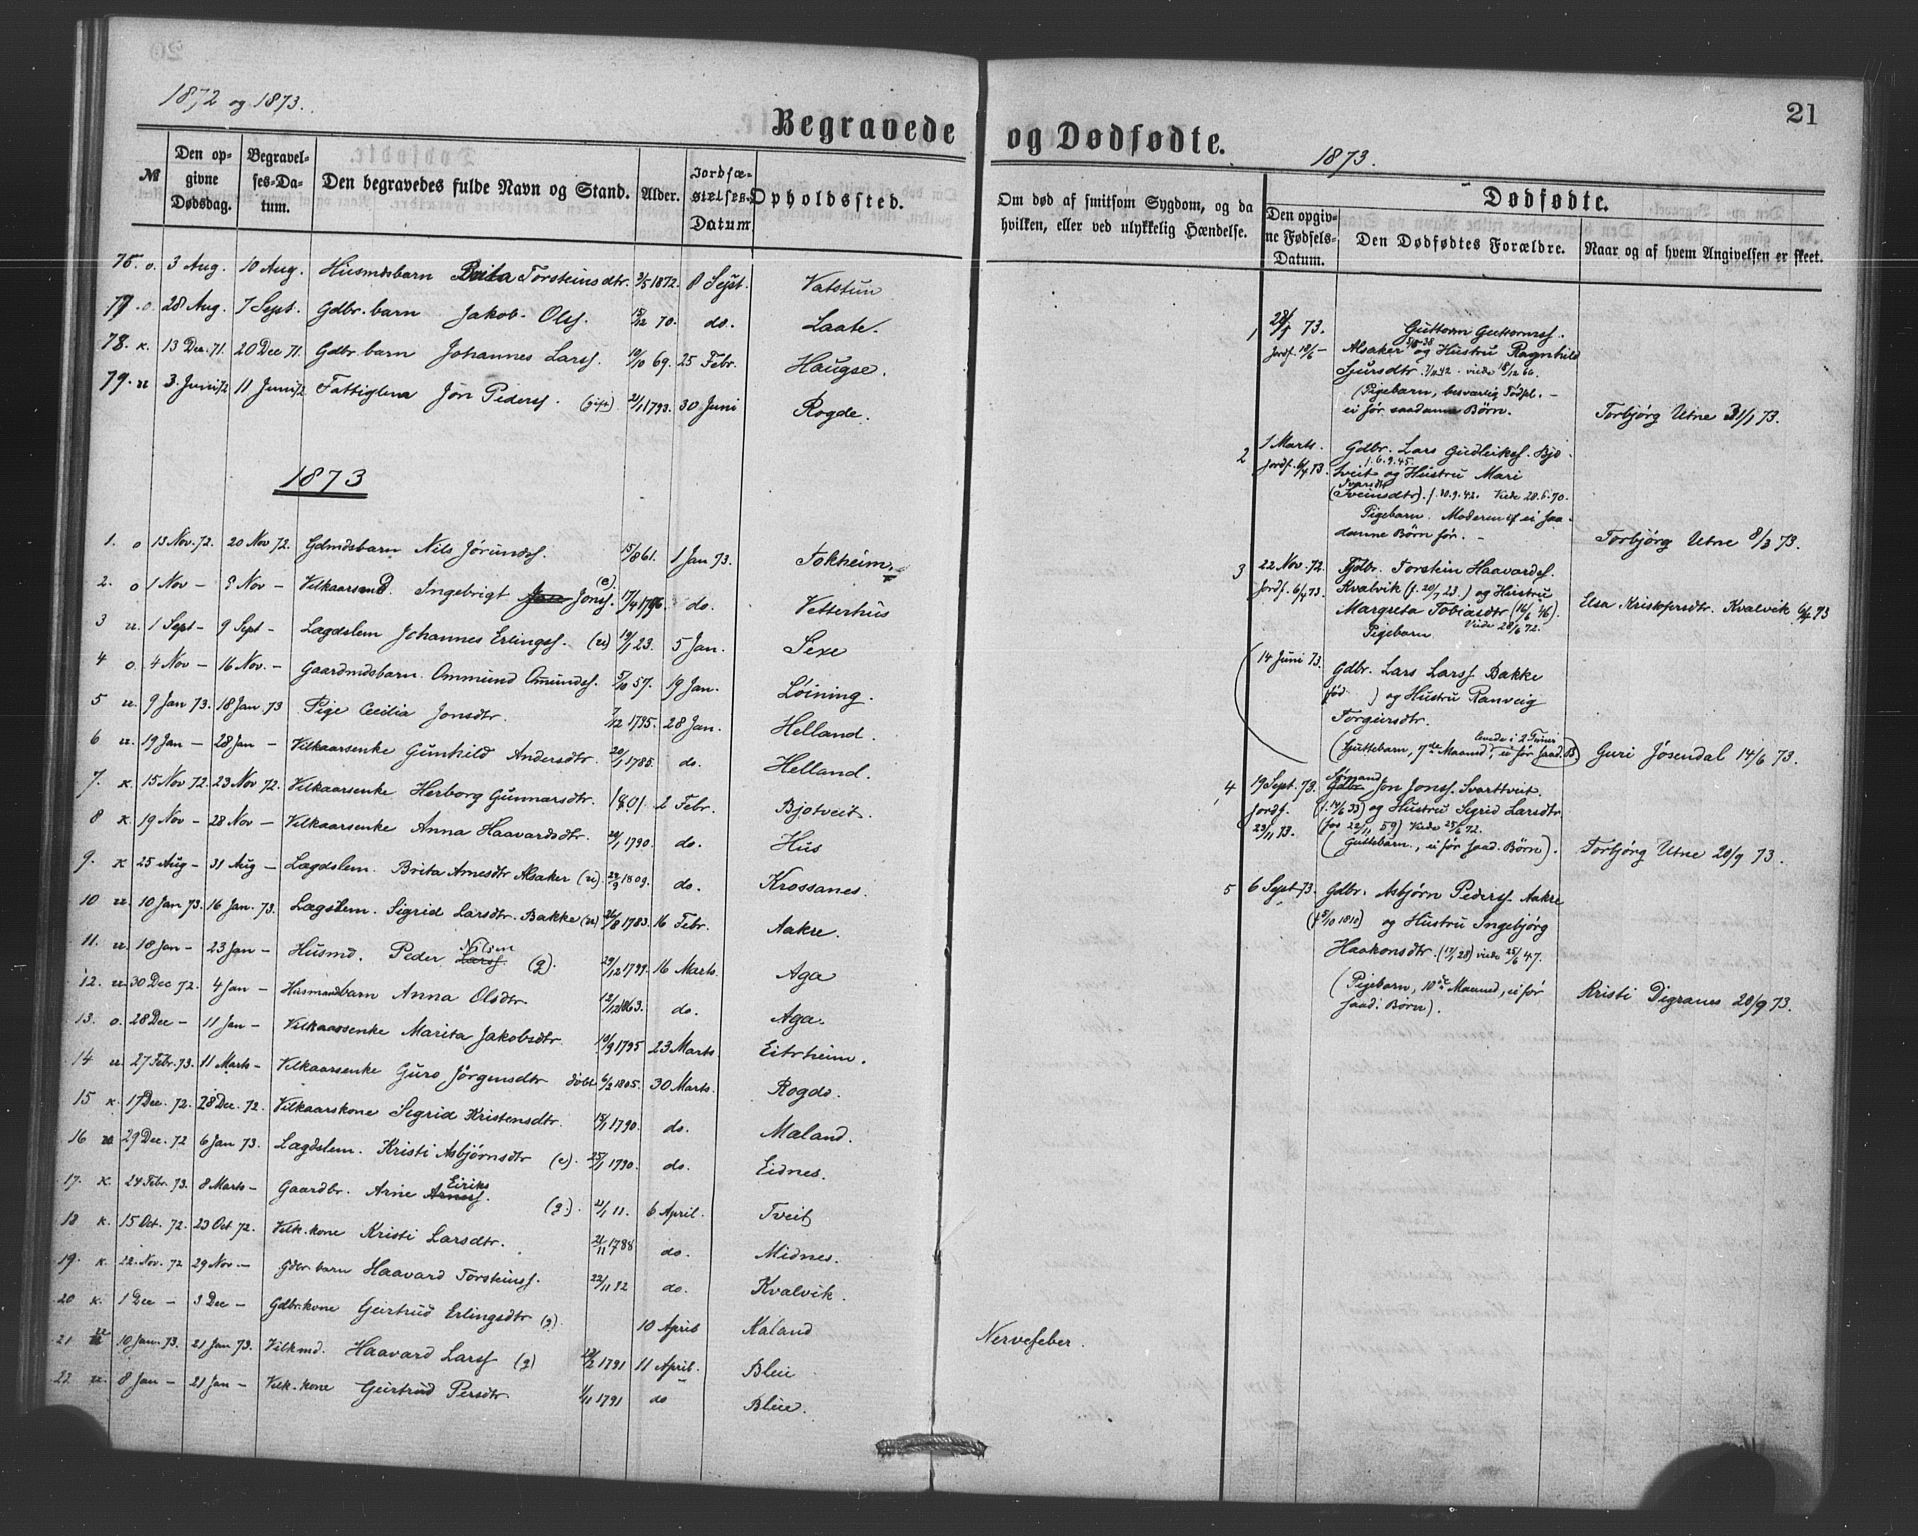 1872 og 1873.
21
Begravede og Dødfødte.
1873.
№
Den opgivne Dødsdag.
Begravelses-Datum.
Den begravedes fulde Navn og Stand.
Alder.
Jordfæstelses-Datum
Opholdssted.
Om død af smitsom Sygdom, og da hvilken, eller ved ulykkelig Hændelse.
Dødfødte.
Den opgivne Fødsels-Datum.
Den Dødfødtes Forældre.
Naar og af hvem Angivelsen er skeet.
76. o. 3 Aug. 10 Aug. Husmdsbarn Brita Torsteinsdtr. 3/5 1872. 8 Sept. Vatstun
77. o. 28 Aug. 7 Sept. Gdbr. barn Jakob Olsf. 15/12 70. do. Laate.
78. k. 13 Dec. 71. 20 Dec 71. Gdbr. barn Johannes Larsf. 19/10 69. 25 Febr. Haugse.
79. u 3 Juni 72 11 Juni 72 Fattiglem Jon Pedersf. (gift) 21/1 1793. 30 Juni Rogde.
1873
1. o 13 Nov. 72. 20 Nov 72. Gdmdsbarn Nils Jørundsf. 15/8 61. 1 Jan 73. Tokheim.
2. o 1 Nov – 9 Nov – Vilkaarsmd. Ingebrigt Jonsf. (e) 17/4 1796 do. Vetterhus
3 u. 1 Sept – 9 Sept – Lægdslem Johannes Erlingsf. (u) 19/1 23. 5 Jan. Sexe
4 o. 4 Nov – 16 Nov. – Gaardmdsbarn. Ommund Omundsf. 5/10 57. 19 Jan. Løining.
5 u. 9 Jan 73. 18 Jan. 73 Pige Cecilia Jonsdtr. 7/12 1795. 28 Jan. Helland.
6 u. 19 Jan – 28 Jan – Vilkaarsenke Gunhild Andersdtr. 20/1 1785. do. Helland.
7. k 15 Nov 72. 23 Nov 72. Vilkaarsenke Herborg Gunnarsdtr. 1801. 2 Febr. Bjotveit.
8 k. 19 Nov – 28 Nov – Vilkaarsenke Anna Haavardsdtr. 24/1 1790. do. Hus
9. k 25 Aug – 31 Aug – Lægdslem. Brita Arnesdtr Alsaker (u). 24/9 1809. do. Krossanes.
10 u. 10 Jan 73. 16 Jan. 73. Lægdslem. Sigrid Larsdtr. Bakke (u) 26/8 1783. 16 Febr. Aakre.
11. u. 18 Jan – 23 Jan – Husmd. Peder Larsf. Nilsen (g). 29/12 1799. 16 Marts Aga
12. u. 30 Dec 72. 4 Jan – Husmandsbarn Anna Olsdtr. 12/12 1863. do. Aga.
13. o. 28 Dec – 11 Jan – Vilkaarsenke Marita Jakobsdtr. 19/9 1795 23 Marts Eitrheim.
14 u. 27 Febr. 73. 11 Marts – Vilkaarsenke Guro Jørgensdtr døbt 6/2 1805. 30 Marts. Rogde.
15 k. 17 Dec. 72. 28 Dec. 72. Vilkaarskone Sigrid Kristensdtr. 18/1 1790. do. Maland.
16 u 29 Dec. 72 6 Jan 73. Lægdslem. Kristi Asbjørnsdtr (e). 25/1 1790. do. Eidnes.
17. k. 24 Febr. 73. 8 Marts – Gaardbr. Arne Arnesf. Eiriks (g.). 2/1 11. 6 April. Tveit
18 k. 15 Oct. 72. 23 Oct 72. Vilk. kone Kristi Larsdtr. 21/11 1788 do. Midnes.
19. k. 22. Nov. 72 29 Nov. – Gdbr. barn Haavard Torsteinsf. 22/11 72 do. Kvalvik.
20 k. 1 Dec – 3 Dec – Gdbr. kone Geirtrud Erlingsdtr (g). 10 April Maland Nervefeber.
21 u 10 Jan. 73. 21 Jan 73. Vilkmd. Haavard Larsf (g) 1791 11 April. Bleie
22 u. 8 Jan – 21 Jan – Vilk. kone Geirtrud Persdtr 1/11 1791 do Bleie.
1 28/1 73. Guttorm Guttormsf.
Jordf. 18/6 – Alsaker og Hustru Ragnhild
Sjursdtr. viede 18/12 66.
(Pigebarn, besværlig Fødsl. –
ei før saadanne Børn. Torbjørg Utne 31/1 73.
2 1 Marts. Gdbr. Lars Gudleiksf. Bjo
f. 6.9.45.
Jordf. 6/4 73 tveit og Hustru Mari
Ivarsdtr
(Sveinsdtr). f. 10.9.42. Viede 28.6.70.
Pigebarn. Moderen ei saadanne
Børn før. – Torbjørg Utne 8/3 73.
3 22 Nov. 72 Gdbr. Torstein Haavardsf.
Jordf. 6/4 73. Kvalvik (f. 20/7 23.) og Hustru
Margreta Tobiasdtr (16/6 46) Elsa Kristofersdtr. Kvalvik 6/4 73
Pigebarn. Viede 28/6 72.
14 Juni 73. Gdbr. Lars Larsf Bakke
(fød ) og Hustru Ranveig
Torgeirsdtr.
levede i 2 Timer
(Guttebarn, 7de Maaned, ei før saad. B) Guri Jøsendal 14/6 73.
4 19 Sept. 73. Sømand Gdbr Jon Jonsf. Svarttveit.
Jordf. (f. 14/6 33) og Hustru Sigrid Larsdtr
23/11 73. (før 22/11 59) Viede 25/6 72.
(Guttebarn., ei før saad. Børn). Torbjørg Utne 20/9 73.
5 6 Sept 73. Gdbr. Asbjørn Pedersf. Aakre
(f 5/10 1810) og Hustru Ingebjørg
Haakonsdtr. (17/1 28) viede 25/6 47.
(Pigebarn, 10de Maaned, ei før
saad. Børn). Kristi Digranes 28/9 73.